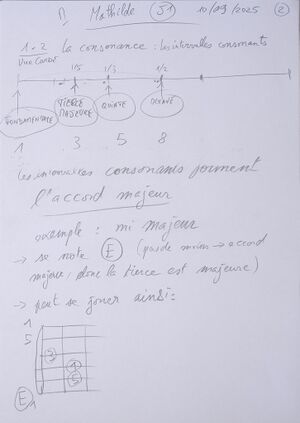 Mathilde S1 10/09/2025 2
1.2 La consonance : les intervalles consonants
Une Corde
1/5 1/3 1/2
FONDAMENTALE TIERCE MAJEURE QUINTE OCTAVE
1 3 5 8
Les intervalles consonants forment
l'accord majeur
exemple : mi majeur
→ se note E (pas de moins → accord
majeur, donc la tierce est majeure)
→ peut se jouer ainsi :
1
5
3
4
5
E 1